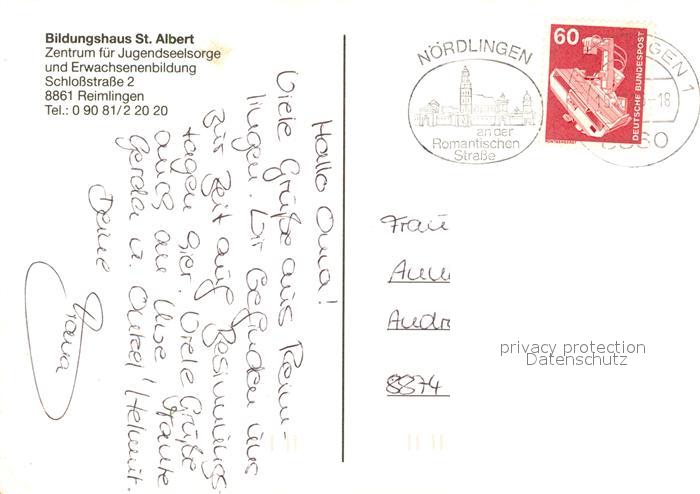 Bildungshaus St. Albert
Zentrum für Jugendseelsorge
und Erwachsenenbildung
Schloßstraße 2
8861 Reimlingen
Tel.: 0 90 81/2 20 20
Hallo Oma!
Viele Grüße aus Reim-
lingen. Wir befinden uns
zur Zeit auf Besinnungs-
tagen hier. Viele Grüße
auch an Uwe, Tante
Gerda u. Onkel Helmut.
Deine
NÖRDLINGEN
an der
Romantischen
Straße
60
DEUTSCHE BUNDESPOST
GEN 1
-18
Frau
8874
privacy protection
Datenschutz